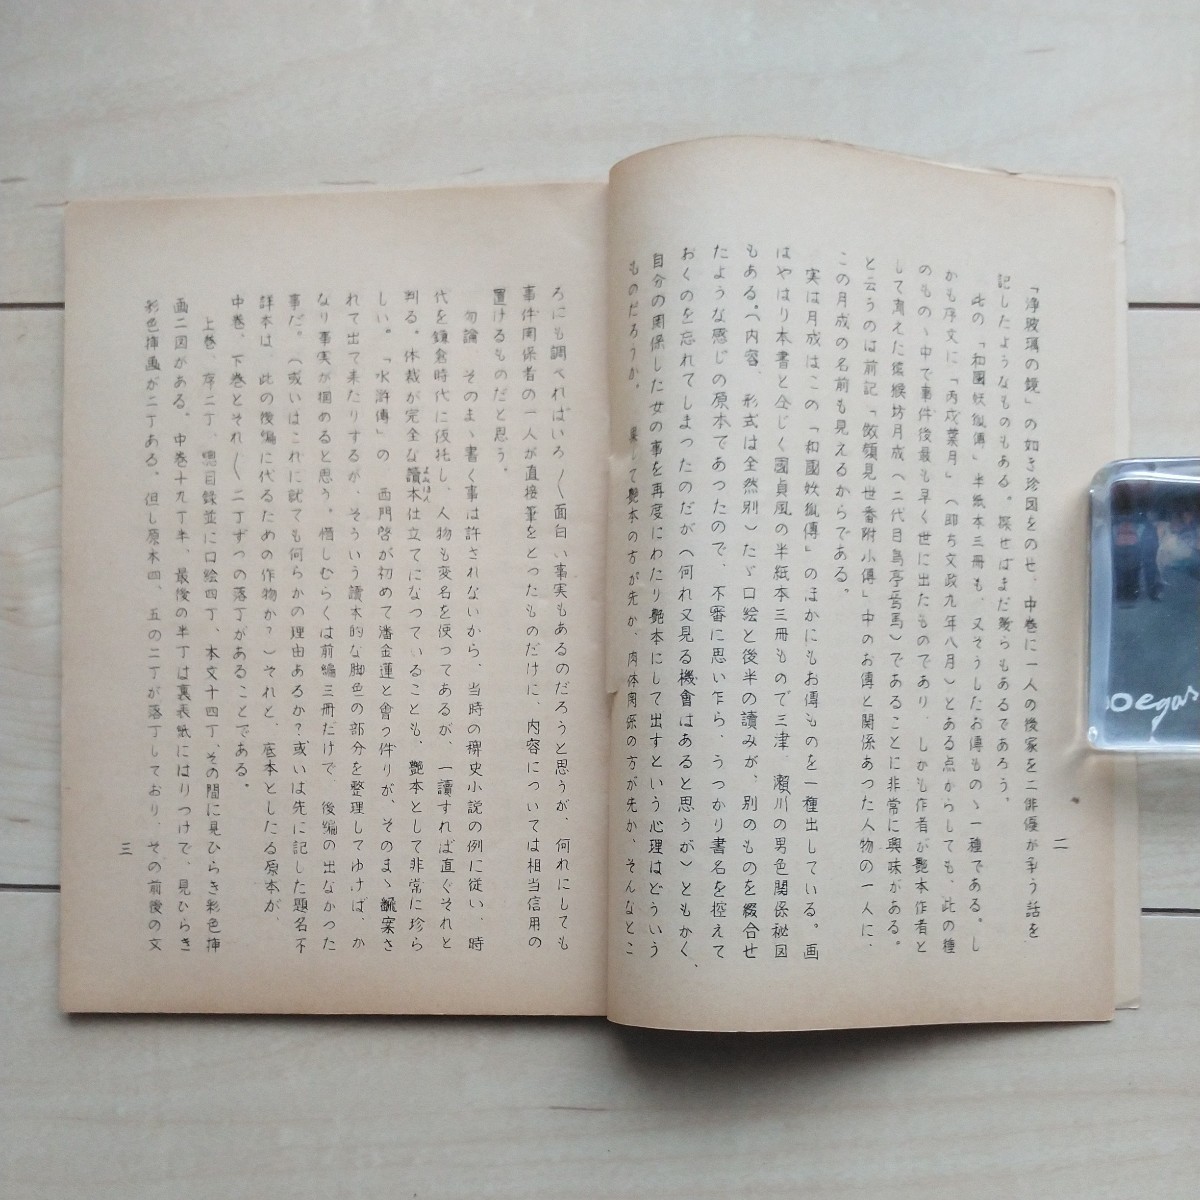 「浄玻璃の鏡」の如き珍図をのせ、中巻に一人の後家を二俳優が爭う話を
記したようなものもある。探せばまだ幾らもあるであろう。
此の「和國妖狐傳」半紙本三冊も、又そうしたお傳ものゝ一種である。し
かも序文に「丙戌葉月」（即ち文政九年八月）とある点からしても、此の種
のものゝ中で事件後最も早く世に出たものであり、しかも作者が艶本作者と
して聞えた猿猴坊月成（二代目烏亭焉馬）であることに非常に興味がある。
と云うのは前記「敵領見世番附小傳」中のお傳と関係あった人物の一人に、
この月成の名前も見えるからである。
実は月成はこの「和國妖狐傳」のほかにもお傳ものを一種出している。画
はやはり本書と仝じく國貞風の半紙本三冊もので三津、瀬川の男色関係祕図
もある。（内容、形式は全然別）たゞ口絵と後半の讀みが、別のものを綴合せ
たような感じの原本であったので、不審に思い乍ら、うっかり書名を控えて
おくのを忘れてしまったのだが（何れ又見る機會はあると思うが）ともかく、
自分の関係した女の事を再度にわたり艶本にして出すという心理はどういう
ものだろうか。果して艶本の方が先か、肉体関係の方が先か、そんなとこ
二
ろにも調べればいろ〳〵面白い事実もあるのだろうと思うが、何れにしても
事件関係者の一人が直接筆をとったものだけに、内容については相当信用の
置けるものだと思う。
勿論、そのまゝ書く事は許されないから、当時の稗史小説の例に従い、時
代を鎌倉時代に仮托し、人物も変名を使ってあるが、一讀すれば直ぐそれと
判る。体裁が完全な讀本よみほん仕立てになっていることも、艶本として非常に珍ら
しい。「水滸傳」の 西門啓が初めて潘金蓮と會う件りが、そのまゝ飜案さ
れて出て来たりするが、そういう讀本的な脚色の部分を整理してゆけば、か
なり事実が掴めると思う。惜しむらくは前編三冊だけで、後編の出なかった
事だ。（或いはこれに就ても何らかの理由あるか？或いは先に記した題名不
詳本は、此の後編に代るための作物か？）それと、底本としたる原本が、
中巻、下巻とそれ〴〵二丁ずつの落丁があることである。
上巻 序二丁、總目録並に口絵四丁、本文十四丁、その間に見ひらき彩色挿
画二図がある。中巻十九丁半、最後の半丁は裏表紙にはりつけで、見ひらき
彩色挿画が二丁ある。但し原本四、五の二丁が落丁しており、その前後の文
三
oegas